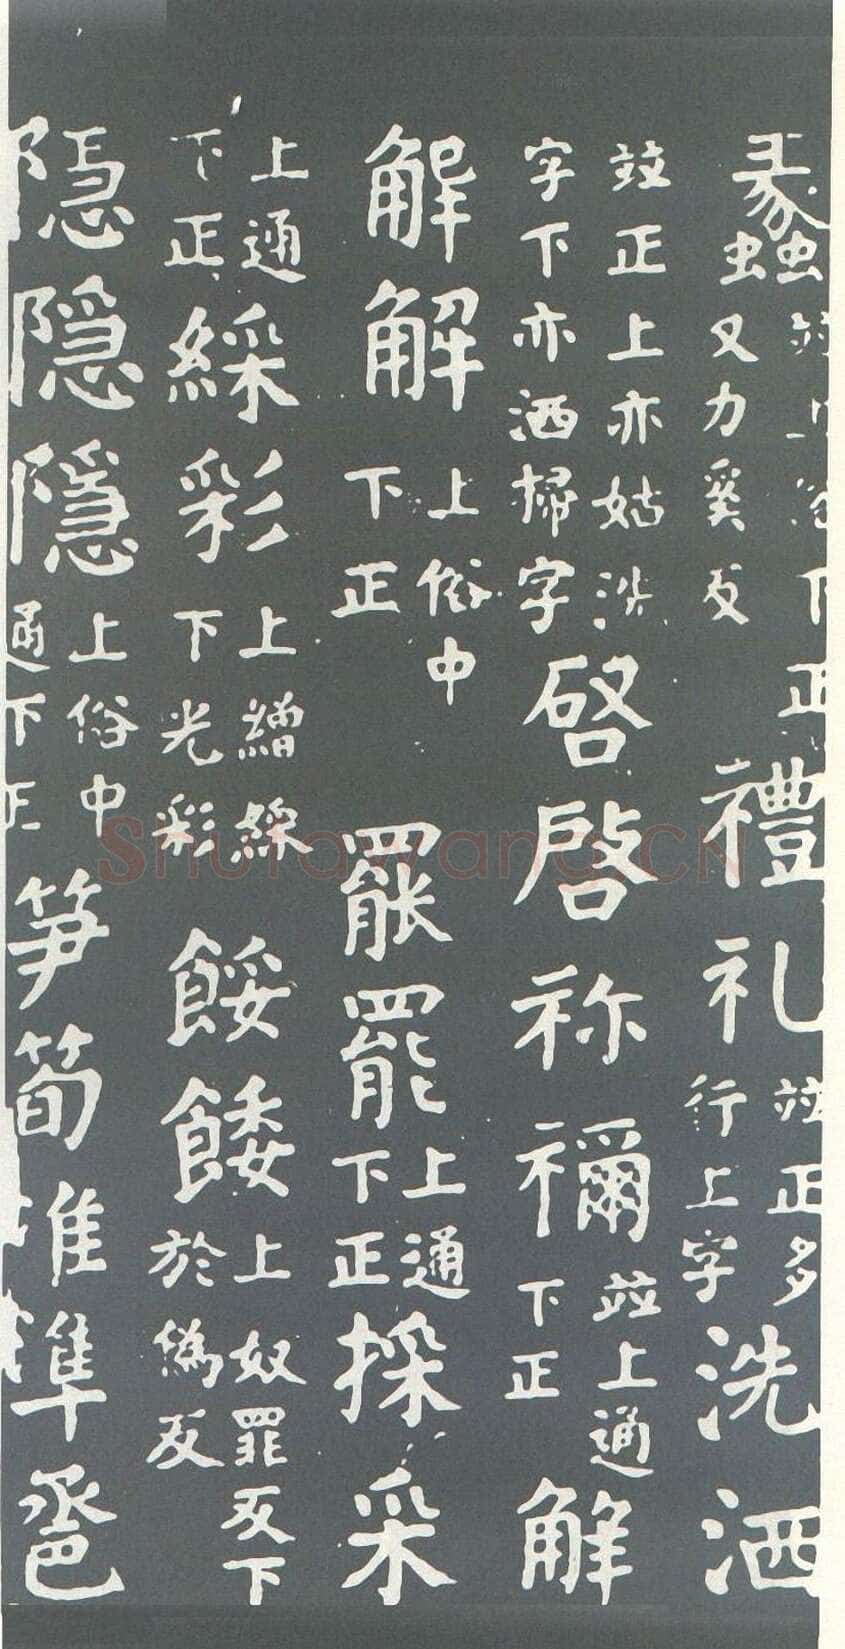 蠡並上俗下正又力奚反禮礼並正多行上字洗洒
並正上亦姑洗字下亦洒掃字啓啓祢禰並上通下正解
解解上俗中下正罷罷上通下正採采
上通下正綵彩上繒綵下光彩餒餧上奴罪反下於偽反
隐隠隱上俗中通下正笋筍准準
Shufawang.CN